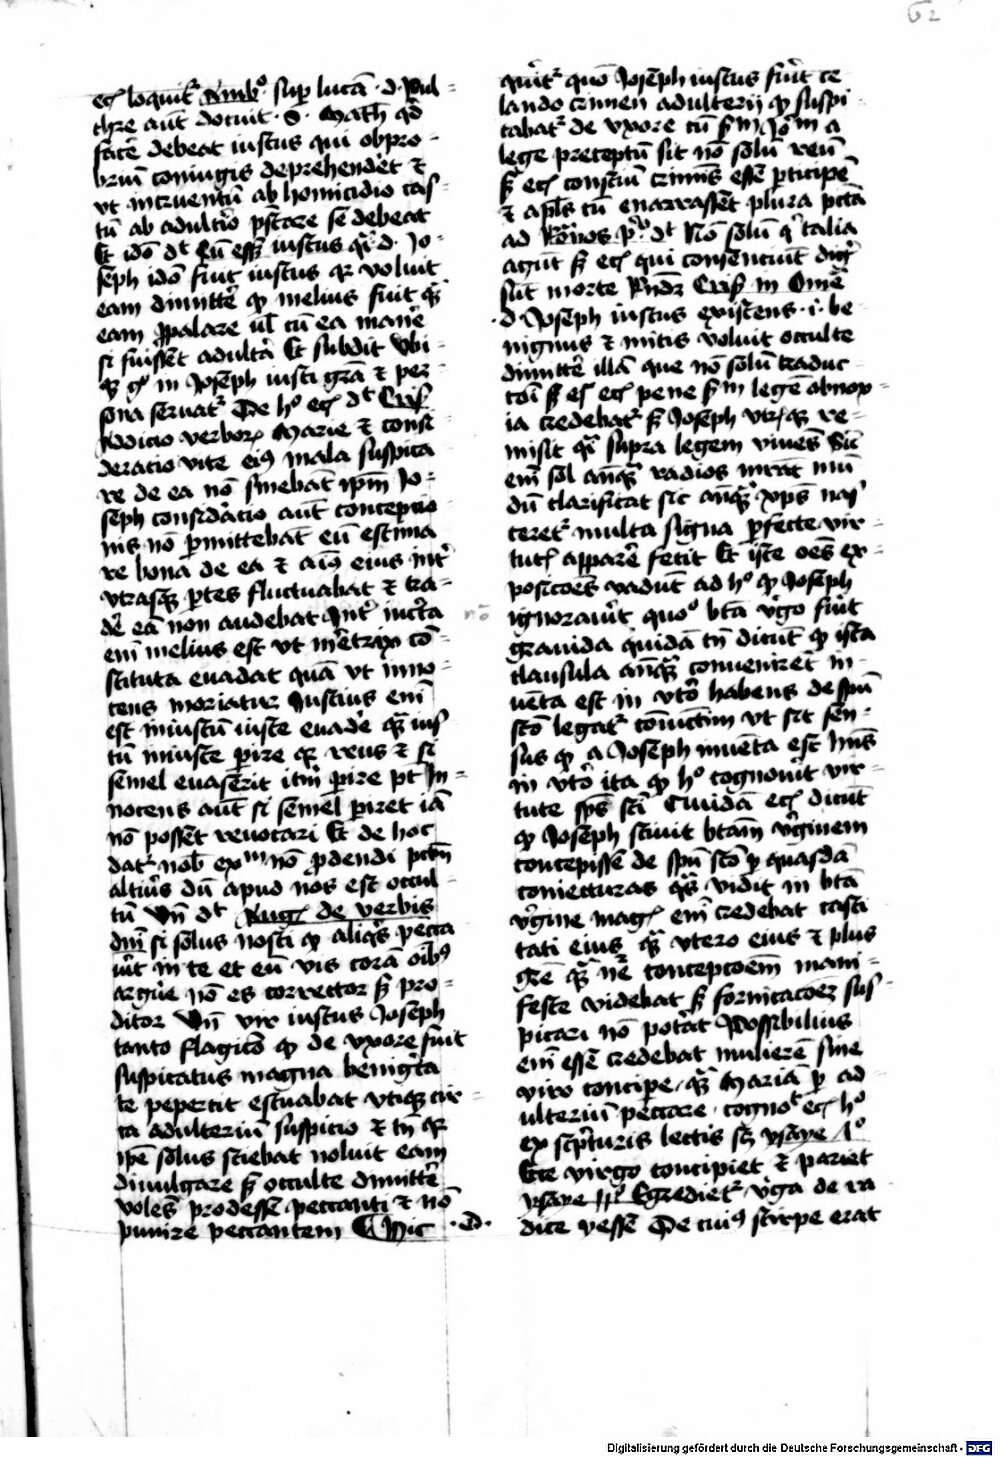 62
eciam loquitur Ambo. sup lucā .d. Pul
chre aūt docuit .S. Math qd
facē debeat iustus qui obpro
briū coniugis deprehendet et
vt incruentū ab homicidio cas
tū ab adultīo pstare se debeat
Et ido dt Cū esset iustus qr d. Jo
seph ido fuit iustus qr voluit
eam dimittē qr melius fuit qm
eam ppalare ul cū ea manēe
si fuisset adultā Et subdit Vbi
qz go in Joseph iusti grā et per
sona seruatr De ho eciam dt Cris
Addicio verborū Marie et consi
deratio vite eiꝰ mala suspica
re de ea nō sinebat ipm Jo
seph considātio aūt conceptio
nis nō pmittebat eū estima
re bona de ea et aīs eius intr
vtrasqz ptes fluctuabat et tra
dē eā non audebat
enī melius est vt mētrix cō
stituta euadat quā vt inno
cens moriatur Iustius enī
est iniustū iuste euadē qz ius
tū iniuste pire qr reus et si
semel euaserit itm pire pt In
nocens aūt si semel piret iā
nō posset reuocari Et de hoc
datr nob exm nō pdendi pctm
altius dū apud nos est occul
tū Vn dt Aug de verbis
dmī si solus nosti qr aliqs pecca
uit in te et eū vis corā oibꝰ
argue nō es corrector sz pro
ditor Vn vir iustus Joseph
tanto flagicō qr de vxore fuit
suspicatus magna benigta
te pepercit estuabat vtiqz cir
ca adulteriū suspicio et tn qr
ipe solus sciebat noluit eam
diuulgare sz occulte dimittē
volēs prodesse peccanti et nō
punire peccantem ¶ Hic .D.
quītr quō Joseph iustus fuit ce
lando crimen adulterij qr suspi
cabatr de vxore cū sm Jom a
lege preceptū sit nō solū reū
sz eciam consciū crimis esse pticipē
et apls cū enarrasset plura pctā
ad Romos po dt Nō solū q talia
agūt sz eciam qui consenciūt digī
sūt morte Rndz Cris in Omē
.d. Joseph iustus existens .i. be
nignus et mitis voluit occulte
dimittē illā que nō solū traduc
coi eciam pene sm legē obnox
ia credebatr sz Joseph vtrqz re
misit qsi supra legem viuēs Sic
enī sol anqz radios mrāt mū
dū clarificat sic anqz xps nas
ceretr multa signa pfecte vir
tutz apparē fecit Et iste oēs ex
posicoēs vadūt ad ho qr Joseph
ignorauit quo btā vgo fuit
grauida quidā tn dicūt qr ista
clausula anqz conuenirēt in
uēta est in vto habens de spū
scō legatr coniūctim vt sit sen
sus qr a Joseph inuēta est hns
in vto ita qr ho cognouit vir
tute sps scī Quidā eciam dicūt
qr Joseph sciuit btam vginem
concepisse de spū scō p quasdā
coniecturas qs vidit in btā
vgine mag enī credebat casti
tati eius qz vtero eius et plus
grē qz nē concepcoem mani
feste videbat sz fornicacoez sus
picari nō potat Possibilius
enī esse credebat mulierē sine
viro concipe qz Mariā p ad
ulteriū peccare cognot eciam ho
ex scpturis lectis sz ysaye
Ecce virgo concipiet et pariet
ysaye Egredietr vga de ra
dice yesse De cuiꝰ stirpe erat
Digitalisierung gefördert durch die Deutsche Forschungsgemeinschaft - DFG